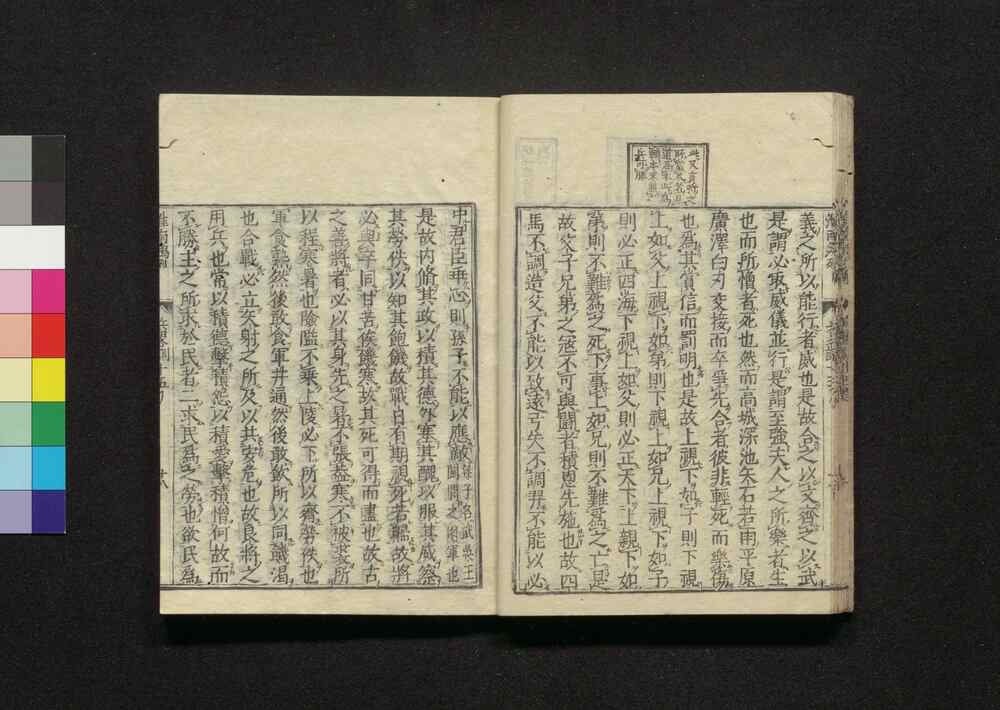 義之所以能行者威也是故合之以文齊之以武
是謂必取威儀並行是謂至強夫人之所樂者生
也而所憎者死也然而高城深池矢石若雨平原
廣澤白刃交接而卒爭先合者彼非輕死而樂傷
也爲其賞信而罰明也是故上視下如子則下視
上如父上視下如弟則下視上如兄上視下如子
則必正四海下視上如父則必正天下上親下如
弟則不難爲之死下事上如兄則不難爲之亡是
故父子兄弟之寇不可與鬭者積恩先施也故四
馬不調造父不能以致遠弓矢不調羿不能以必
中君臣乖心則孫子不能以應敵孫子名武吳王闔閭之將軍也
是故内脩其政以積其德外塞其醜以服其威察
其勞佚以知其飽饑故戰日有期視死若歸故將
必與卒同甘苦俟饑寒故其死可得而盡也故古
之善將者必以其身先之暑不張蓋寒不被裘所
以程寒暑也險隘不乗上陵必下所以齊勞佚也
軍食熟然後敢食軍井通然後敢飲所以同饑渴
也合戰必立矢射之所及以共安危也故良將之
用兵也常以積德擊積怨以積愛擊積憎何故而
不勝主之所求於民者二求民爲之勞也欲民爲